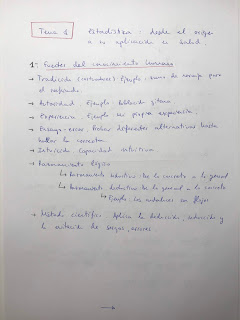 Tema 1 Estadística: desde el origen
a su aplicación en salud.
1- Fuentes del conocimiento humano
→ Tradición (costumbres) Ejemplo: zumo de naranja para
el resfriado
→ Autoridad. Ejemplo:
→ Experiencia. Ejemplo: mi propia experiencia.
→ Ensayo-error. Probar diferentes alternativas hasta
hallar la correcta.
→ Intuición. Capacidad intuitiva.
→ Razonamiento lógico
↳ Razonamiento inductivo: De lo concreto a lo general
↳ Razonamiento deductivo: De lo general a lo concreto
↳ Ejemplo: Los
→ Método científico. Aplica la deducción, inducción y
la de sesgos, errores